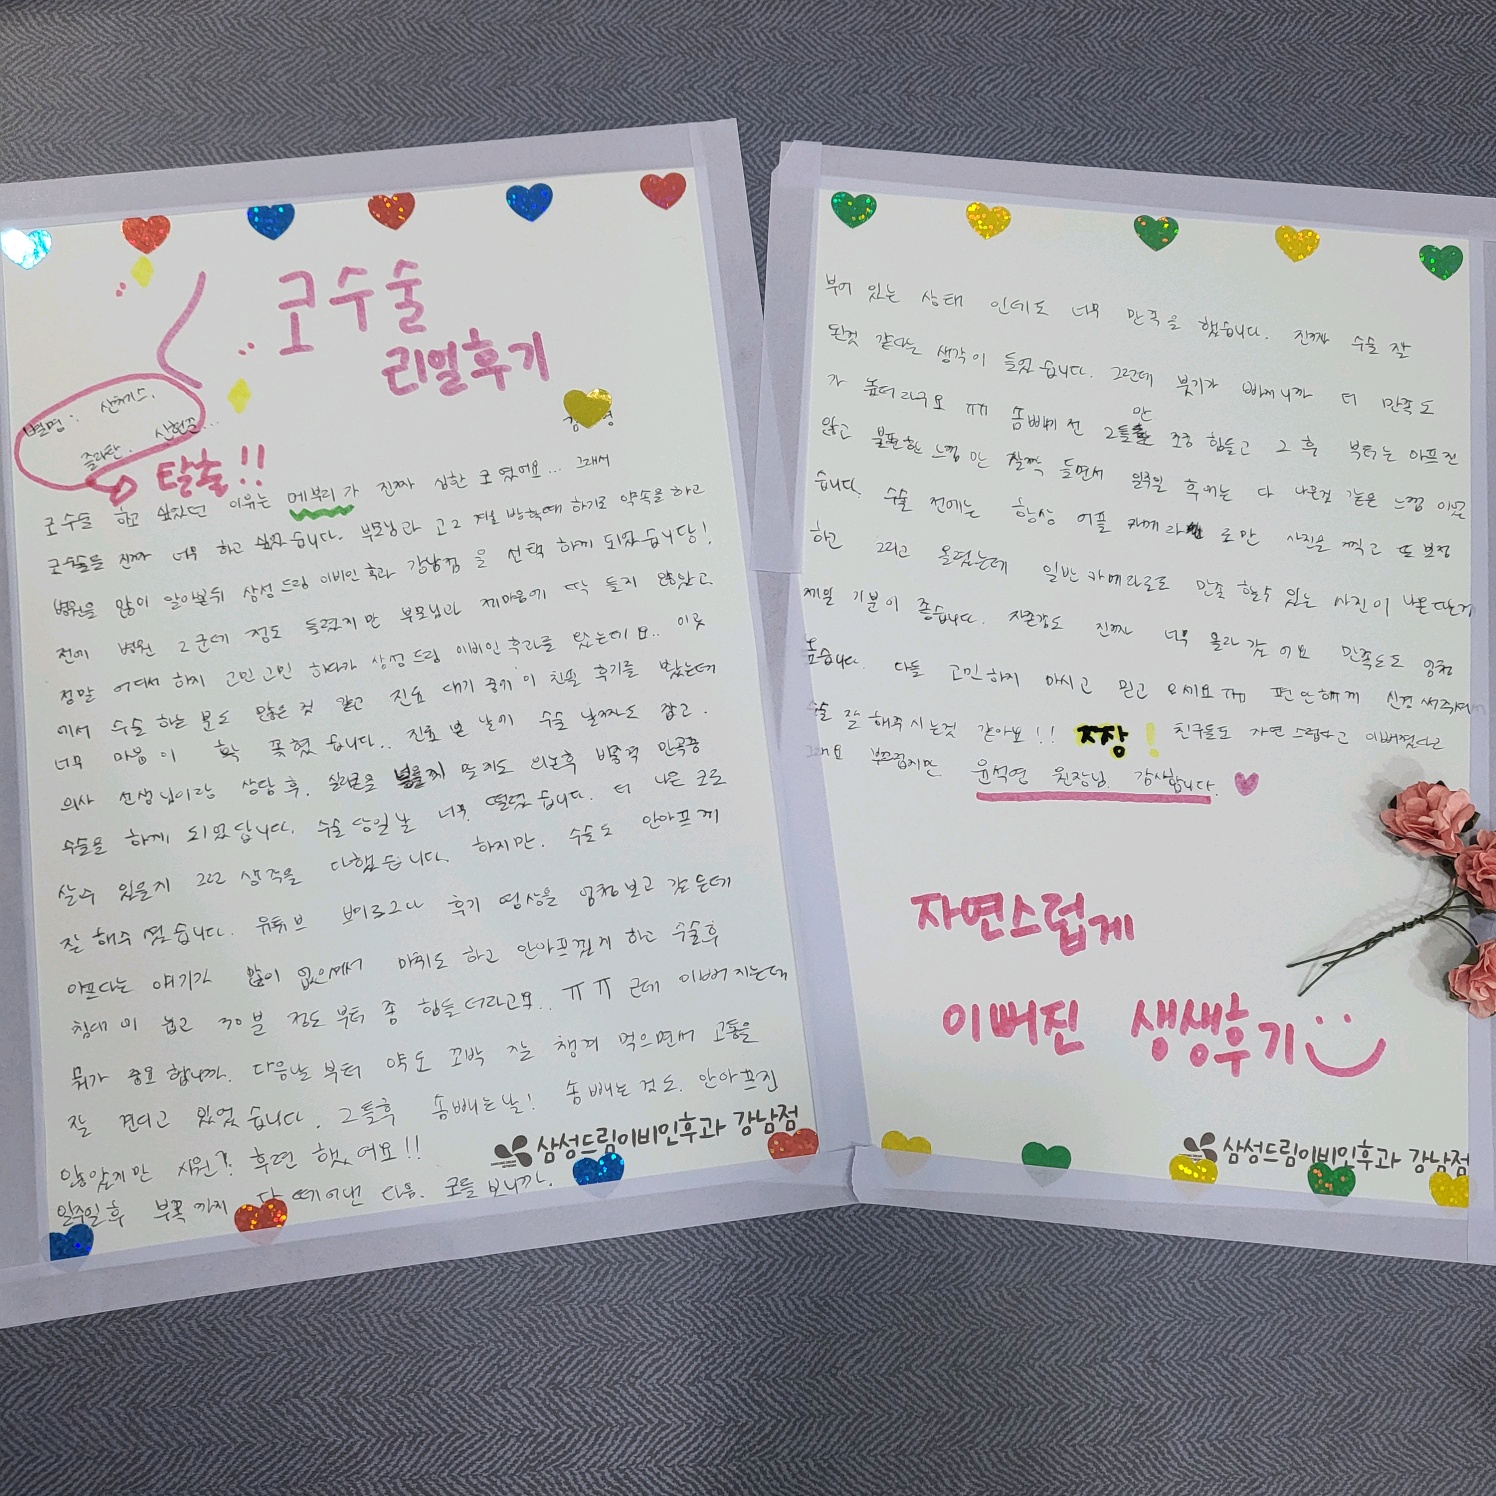 코수술
리얼후기
별명: 산체스,
즐라탄. 산현준...
탈출!!
코수술 하고 싶었던 이유는 메부리가 진짜 심한 코였어요... 그래서
코수술을 진짜 너무 하고 싶었습니다. 부모님과 고2 겨울방학때 하기로 약속을 하고
병원을 많이 알아본뒤 삼성드림이비인후과 강남점을 선택하게 되었습니당!
전에 병원 2군데 정도 들렸지만 부모님과 제마음에 딱 들지 않았고
정말 어디서 하지 고민고민 하다가 삼성드림 이비인후과를 왔는데요.. 이곳
에서 수술 하는 분도 많은 것 같고 진료 대기 중에 이 친필 후기를 봤는데
너무 마음이 확 꽂혔습니다.. 진료 본 날에 수술 날짜도 잡고.
의사 선생님이랑 상담 후. 실리콘을 넣을지 말지도 의논후 비중격 만곡증
수술을 하게 되었답니다. 수술 당일날 너무 떨렸습니다. 더 나은 코로
살수 있을지 그런 생각을 다했습니다. 하지만. 수술도 안아프게
잘 해주셨습니다. 유튜브 브이로그나 후기 영상을 엄청보고 갔는데
아프다는 얘기가 많이 있으면서 마취도 하고 안아프길게 하고 수술후
침대에 눕고 30분 정도부터 좀 힘들더라고요.. ㅠㅠ 근데 이뻐지는데
뭐가 중요합니까. 다음날부터 약도 꼬박 잘 챙겨 먹으면서 고통을
잘 견디고 있었습니다. 그틀후 솜빼는날! 솜 빼는것도. 안아프진
않았지만 시원? 후련 했어요!!
일주일후 부목까지 다 떼어낸 다음. 코를 보니까.
삼성드림이비인후과 강남점
부어 있는 상태 인데도 너무 만족을 했습니다. 진짜 수술 잘
된것 같다는 생각이 들었습니다. 그런데 붓기가 빠지니까 더 만족도
가 높더라구요 ㅠㅠ 솜빼기 전 2틀만 조금 힘들고 그 후 부터는 아프진
않고 불편한 느낌만 살짝 들면서 일주일 후에는 다 나은것 같은 느낌 이였
습니다. 수술 전에는 항상 어플 카메라로만 사진을 찍고 또 보정
하고 그리고 올렸는데 일반카메라로도 만족 할수 있는 사진이 나온다는게
제일 기분이 좋습니다. 자존감도 진짜 너무 올라감 어요 만족도도 엄청
높습니다. 다들 고민하지 마시고 믿고 오세요 편안하게 신경써주셔서
수술 잘 해주시는것 같아요!! 짱! 친구들도 자연스럽다고 이뻐졌다고
그래요 부끄럽지만 윤석연 원장님. 감사합니다.
자연스럽게
이뻐진 생생후기
삼성드림이비인후과 강남점